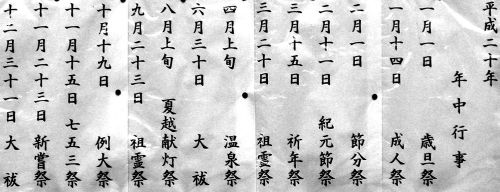 平成二十年
年中行事
一月一日 歳旦祭
一月十四日 成人祭
二月一日 節分祭
二月十一日 紀元節祭
三月十五日 祈年祭
三月二十日 祖霊祭
四月上旬 温泉祭
六月三十日 大祓
八月上旬 夏越献灯祭
九月二十三日 祖霊祭
十月十九日 例大祭
十一月十五日 七五三祭
十一月二十三日 新嘗祭
十二月三十一日 大祓